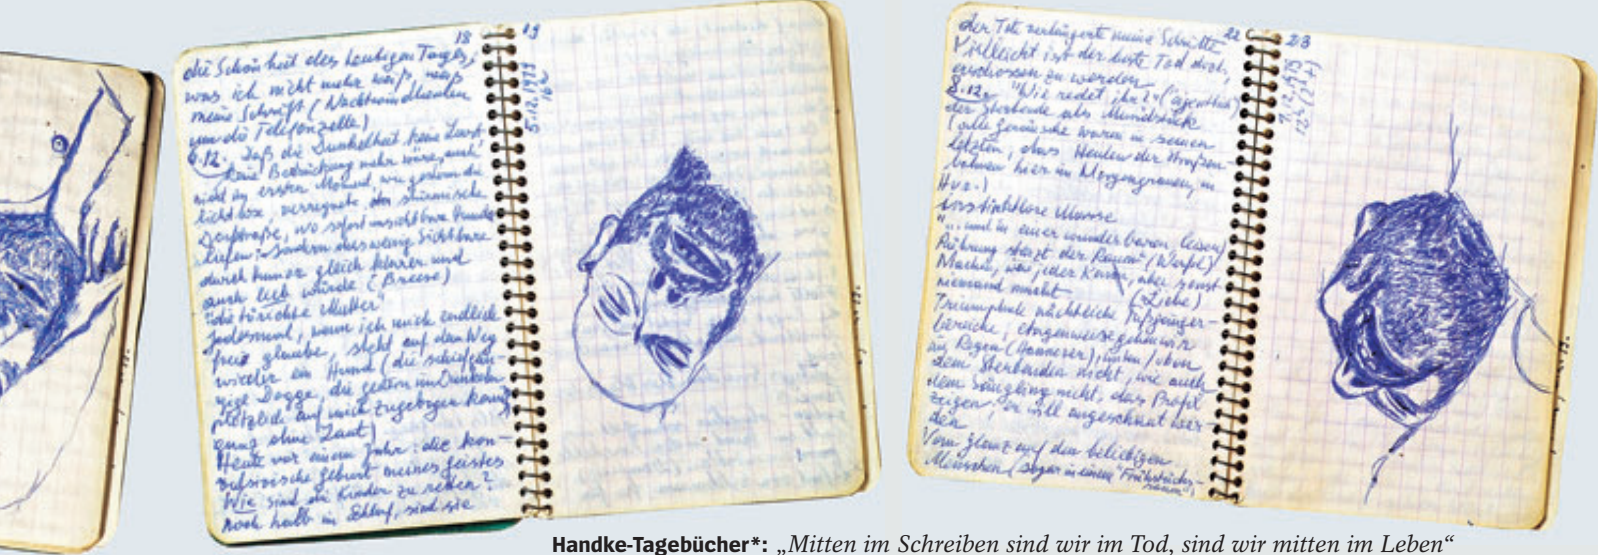 18
die Schönheit des heutigen Tages,
was ich nicht mehr weiß, weiß
meine Schrift (Nachtwindheulen
um die Telefonzelle)
6.12. Daß die Dunkelheit keine Last,
keine Bedrückung mehr wäre, auch
nicht im ersten Moment, wie gestern die
lichtlose, verregnete, stürmische
wo sofort unsichtbare Hunde
liefen: sondern das wenig Sichtbare
durch immer gleich klarer und
auch lieb würde (Breese)
"die törichte Mutter"
Jedesmal, wenn ich mich endlich
frei glaube, steht auf dem Weg
wieder ein Hund (die
Dogge, die gestern im Dunkeln
plötzlich auf mich zugebogen kam,
ganz ohne Laut)
Heute vor einem Jahr: die kon-
vulsivische Geburt meines Geistes
Wie sind die Kinder zu retten?
Noch halb im Schlaf, sind sie
19
5.12.1979
22
der Tote verlängerte meine Schritte
Vielleicht ist der beste Tod doch,
erschossen zu werden
8.12. "Wie redet ihr?" (eigentlich)
der Sterbende als Mundstück
(alle Geräusche waren in seinem
letzten, das Heulen der Straßen-
bahnen hier im Morgengrauen, im
"... und in einer wunderbaren leisen
Rührung stürzt der Raum" (Werfel)
Machen, was jeder kann, aber sonst
niemand macht (Liebe)
Triumphale nächtliche Fußgänger-
bereiche,
im Regen (Hannover), unten / oben
dem Sterbenden nicht, wie auch
dem Säugling nicht, das Profil
zeigen; er will angeschaut wer-
den
Vom Glanz auf den beliebigen
Menschen (sogar in einem "Frühstücks-
raum",
23
7.12.1979
Handke-Tagebücher*: „Mitten im Schreiben sind wir im Tod, sind wir mitten im Leben“